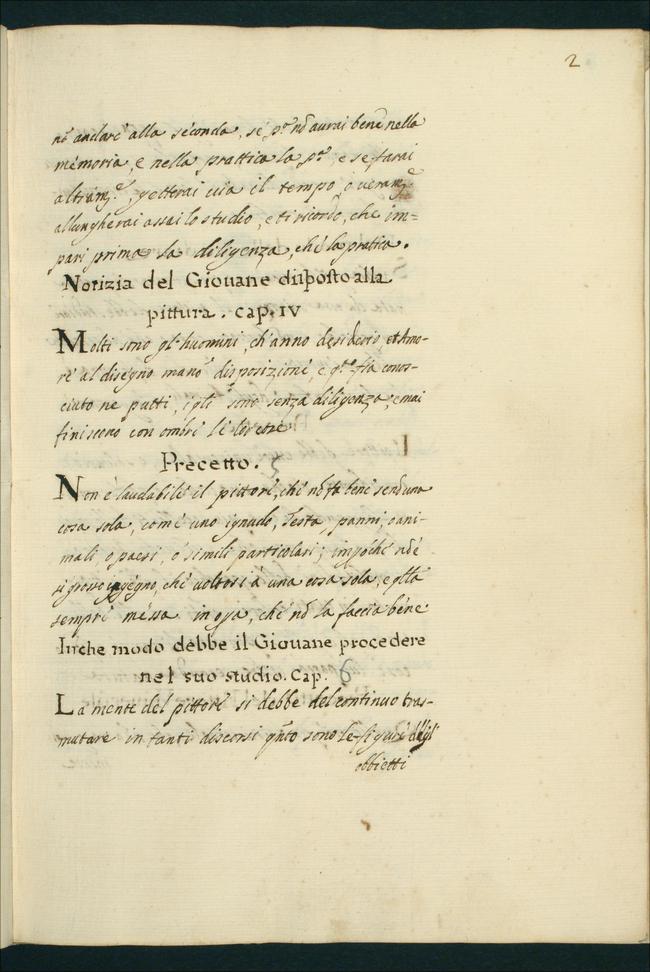 2
nō andare alla seconda, se p.ᵃ nō aurai bene nella
memoria, e nella prattica la p.ᵃ e se farai
altram.ᵉ, getterai uia il tempo, o ueram.ᵉ
allungherai assai lo studio, e ti ricordo, che im=
pari prima la diligenza, che la pratica.
Notizia del Giouane disposto alla
pittura. cap. IV
Molti sono gl'huomini, ch'anno desiderio, et Amo-
re al disegno ma nō disposizione, e q.ᵒ fia conos-
ciuto ne putti, i qli sono senza diligenza, e mai
finiscono con ombre le lor
Precetto. 5
Non è laudabile il pittore, che nō fa bene se nō una
cosa sola, come uno ignudo, Testa, panni, o ani-
mali, o paesi, o simili particolari; impōche nō è
si grosso ingegno, che uoltosi à una cosa sola, e qlla
sempre messa in opa, che nō la faccia bene
In che modo debbe il Giouane procedere
nel suo studio. Cap. 6
La mente del pittore si debbe del continuo tras-
mutare in tanti discorsi qnto sono le figure dlli
obbietti